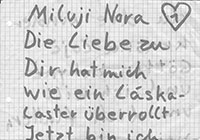 Miluji Nora 1
Die Liebe zu
Dir hat mich
wie ein Láska-
Laster überrollt
Jetzt bin ich